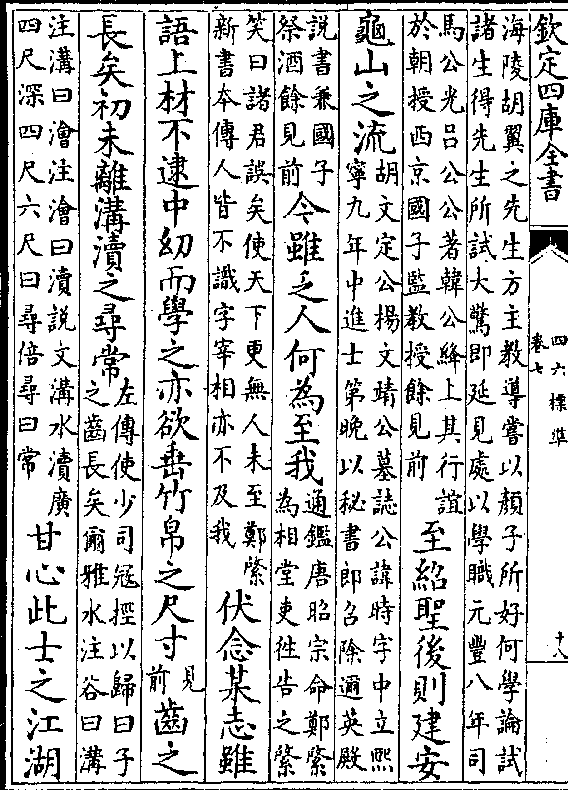 欽定四庫全書
四六標準
卷七
十八
海陵胡翼之先生方主教導嘗以顏子所好何學論試
諸生得先生所試大驚即延見處以學職元豐八年司
馬公光呂公公著韓公絳上其行誼
於朝授西京國子監教授餘見前
至紹聖後則建安
龜山之流
胡文定公楊文靖公墓誌公諱時字中立熙
寧九年中進士第晚以秘書郎召除邇英殿
說書兼國子
祭酒餘見前
今雖乏人何為至我
通鑑唐昭宗命鄭綮
為相堂吏徃告之綮
笑曰諸君誤矣使天下更無人未至鄭綮
新書本傳人皆不識字宰相亦不及我
伏念某志雖
語上材不逮中幼而學之亦欲垂竹帛之尺寸
見
前
齒之
長矣初未離溝瀆之尋常
左傳使少司冦挳以歸曰子
之齒長矣爾雅水注谷曰溝
注溝曰澮注澮曰瀆說文溝水瀆廣
四尺深四尺六尺曰尋倍尋曰常
甘心此士之江湖